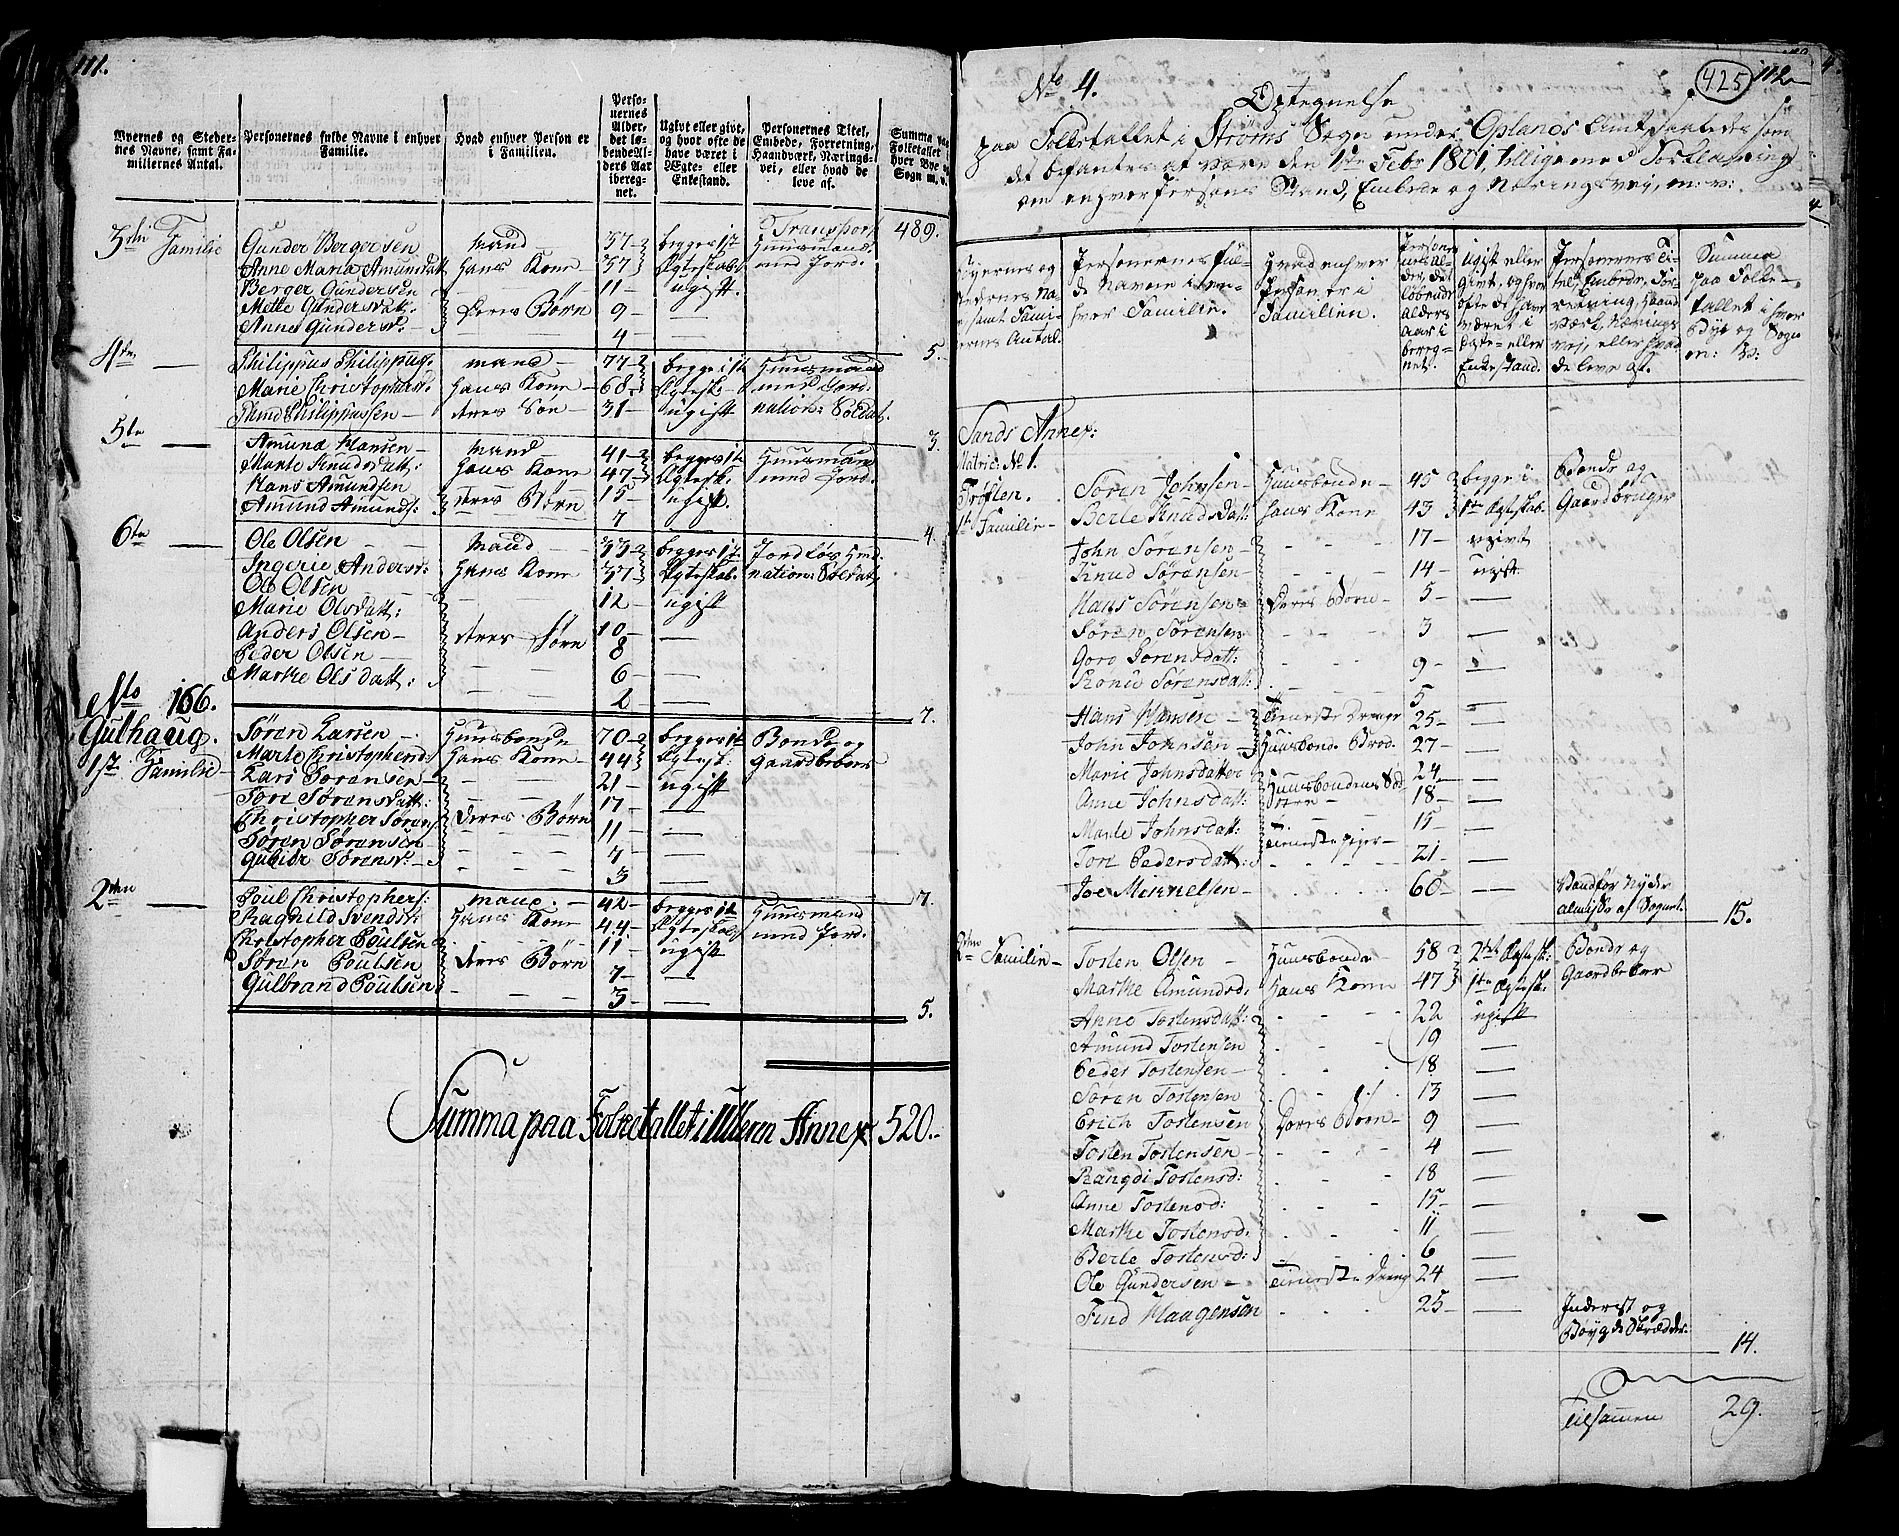 111.
Byernes og Steder-
nes Navne, samt Fa-
miliernes Antal.
Personernes fulde Navne i enhver
Familie.
Hvad enhver Person er
i Familien.
Perso-
nernes
Alder,
det lø-
bende Al-
ders Aar
ibereg-
net.
Ugivt eller givt,
og hvor ofte de
have været i
Ægte- eller
Enkestand.
Personernes Titel,
Embede, Forretning,
Haandværk, Nærings-
vei, eller hvad de
leve af.
Summa paa
Folketallet i
hver Bye og
Sogn m. v.
Transport 489.
3die Familie Gunder Bergersen Mand 37 begge i 1st Huusmand
Anne Maria Amundsdatt hans Kone 37 Ægteskab med Jord.
Berger Gundersen 11 ugift.
Mette Gundersdatt: deres Børn 9 —
Anne Gundersd: 4 —
5.
4de — Philippus Philippus: mand 77 begge i 1st Huusmand
Marie Christophers: hans Kone 68 Ægtesk: med Jord.
Philippussen deres Søn 31 ugift nation: Soldat.
3.
5te — Amund Hansen Mand 41 begge i 1st Huusmand
Marte Knudsdatt: hans Kone 47 Ægtesk. med Jord.
Hans Amundsen 15 ugift.
Amund Amunds: deres Børn 7
4.
6te — Ole Olsen Mand 33 begge i 1st Jordløs
Ingerie Andersd: hans Kone 37 Ægteskab. nation: Soldat
Ole Olsen 12 ugift
Marie Olsdatt: 10 —
Anders Olsen deres Børn 8
Peder Olsen 6 —
Marthe Olsdatt: 2 —
7.
No 166.
Gulhaug.
1st Familie Søren Larsen Huusbonde 70 begge i 1st Bonde og
Marte Christophersd: hans Kone 44 Ægtesk: Gaardbeboer
Lars Sørensen 21 ugift
Tore Sørensdatt: 17 —
Christopher Sørens: deres Børn 11 —
Søren Sørensen 4 —
Sørensd: 3 —
7.
2den — Poul Christophers: mand. 42 begge i 1st Huusmand
Ragnild Svends: hans Kone 44 Ægteskab med Jord.
Christopher Poulsen 11 ugift
Søren Poulsen deres Børn 7 —
Gulbrand Poulsen 3 —
5.
Summa paa Folketallet i Ullern Annex 520.
425
112
No 4.
Optegnelse
paa Folketallet i Strøms Sogn under Oplands Amt saaledes som
det befantes at være den 1ste Febr 1801, tilligemed Forklaring
om enhver Persons Stand, Embede og Næringsvej, m: v:
Byernes og
Stedernes Na-
vne, samt Fami-
liernes Antal.
Personernes ful-
de Navne i en-
hver Familie.
Hvad enhver
Person er i
Familien.
Persone-
rnes Al-
der, det
løbende
Alders
Aar i
bereg-
net.
Ugift eller
givt, og hvor
ofte de have
været i
Ægte- eller
Enkestand.
Personernes Ti-
tel, Embede, For-
retning, Haand-
værk, Nærings-
vej, eller hvad
de leve af.
Summa
paa Folke-
tallet i hver
Bye og Sogn
m: v:
Sands Annex:
Matric: No 1.
Trøften.
1te Familie Søren Johnsen Huusbonde 45 begge i Bonde og
Berte Knudsdatt: hans Kone 43 1te Ægteskab. Gaardbruger
John Sørensen 17 ugivt
Knud Sørensen 14 ugift
Hans Sørensen Deres Børn 5 —
Søren Sørensen 3 —
Goro Sørensdatt: 9 —
Ronie Sørensdatt: 5 —
Hans Hansen Tieneste Drenge 25 —
John Johnsen Huusbond. Brod. 27 —
Marie Johnsdatter 24 —
Anne Johnsdatt: Huusbondens Sød- 18 —
Marte Johnsdatt: 15 —
Tore Pedersdatt: tieneste piger 21 —
Joe Michelsen 60 — Vandfør Nyder
Almisse af Sognet.
15.
2den Familie Tosten Olsen Huusbonde 58 2det Ægtesk: Bonde og
Marthe Amundsd: hans Kone 47 1te Ægtesk: Gaardbeboer
Anne Tostensdatt: 22 ugift
Amund Tostensen 19 —
Peder Tostensen 18 —
Søren Tostensen 13 —
Erich Tostensen Deres Børn 9 —
Tosten Tostensen 4 —
Rangdi Tostensd: 18 —
Anne Tostensd: 15 —
Marthe Tostensd: 11 —
Berte Tostensd: 6 —
Ole Gundersen tieneste Dreng 24 —
Find Haagensen 25 — Inderst og
Bøygde Skrædder.
14.
Tilsammen 29.